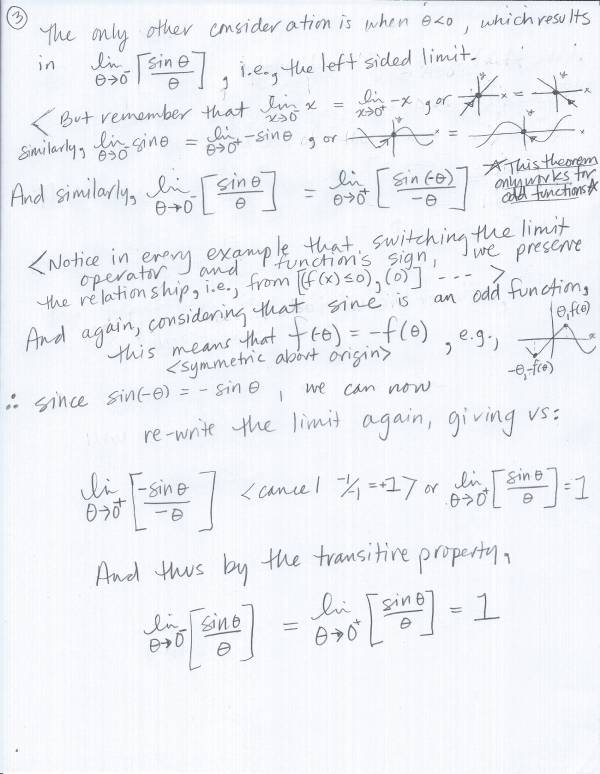 ③ The only other consideration is when θ<0, which results
in lim θ→0⁻ [sin θ / θ], i.e., the left sided limit.
<But remember that lim x→0⁻ x = lim x→0⁺ -x, or x y = x y
Similarly, lim θ→0⁻ sin θ = lim θ→0⁺ -sin θ, or x y = x y
And similarly, lim θ→0⁻ [sin θ / θ] = lim θ→0⁺ [sin(-θ) / -θ]
☆This theorem
only works for
odd functions☆
<Notice in every example that, switching the limit
operator and function's sign, we preserve
the relationship, i.e., from [(f(x)≤0), (0)] --- >
And again, considering that sine is an odd function,
this means that f(-θ) = -f(θ), e.g., θ, f(θ)
<symmetric about origin> -θ, -f(θ)
∴ since sin(-θ) = - sin θ, we can now
re-write the limit again, giving us:
lim θ→0⁺ [-sin θ / -θ] <cancel -1/-1 = +1> or lim θ→0⁺ [sin θ / θ] = 1
And thus by the transitive property,
lim θ→0⁻ [sin θ / θ] = lim θ→0⁺ [sin θ / θ] = 1